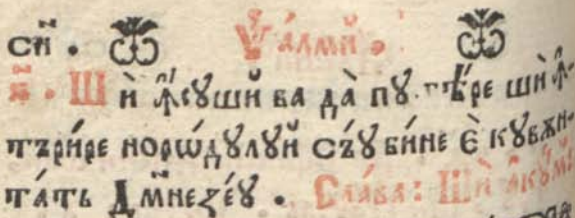 сй · Ѱалмй ·
н҃ · Шѝ ꙟсꙋшй ва да̀ пꙋтѣ́ре шѝ ꙟ-
търи́ре норѡ́дꙋлꙋй съ́ꙋ бине є̀ кꙋвѫн-
та́ть Дм҃незе́ꙋ · Сла́ва: Шѝ акꙋ́м